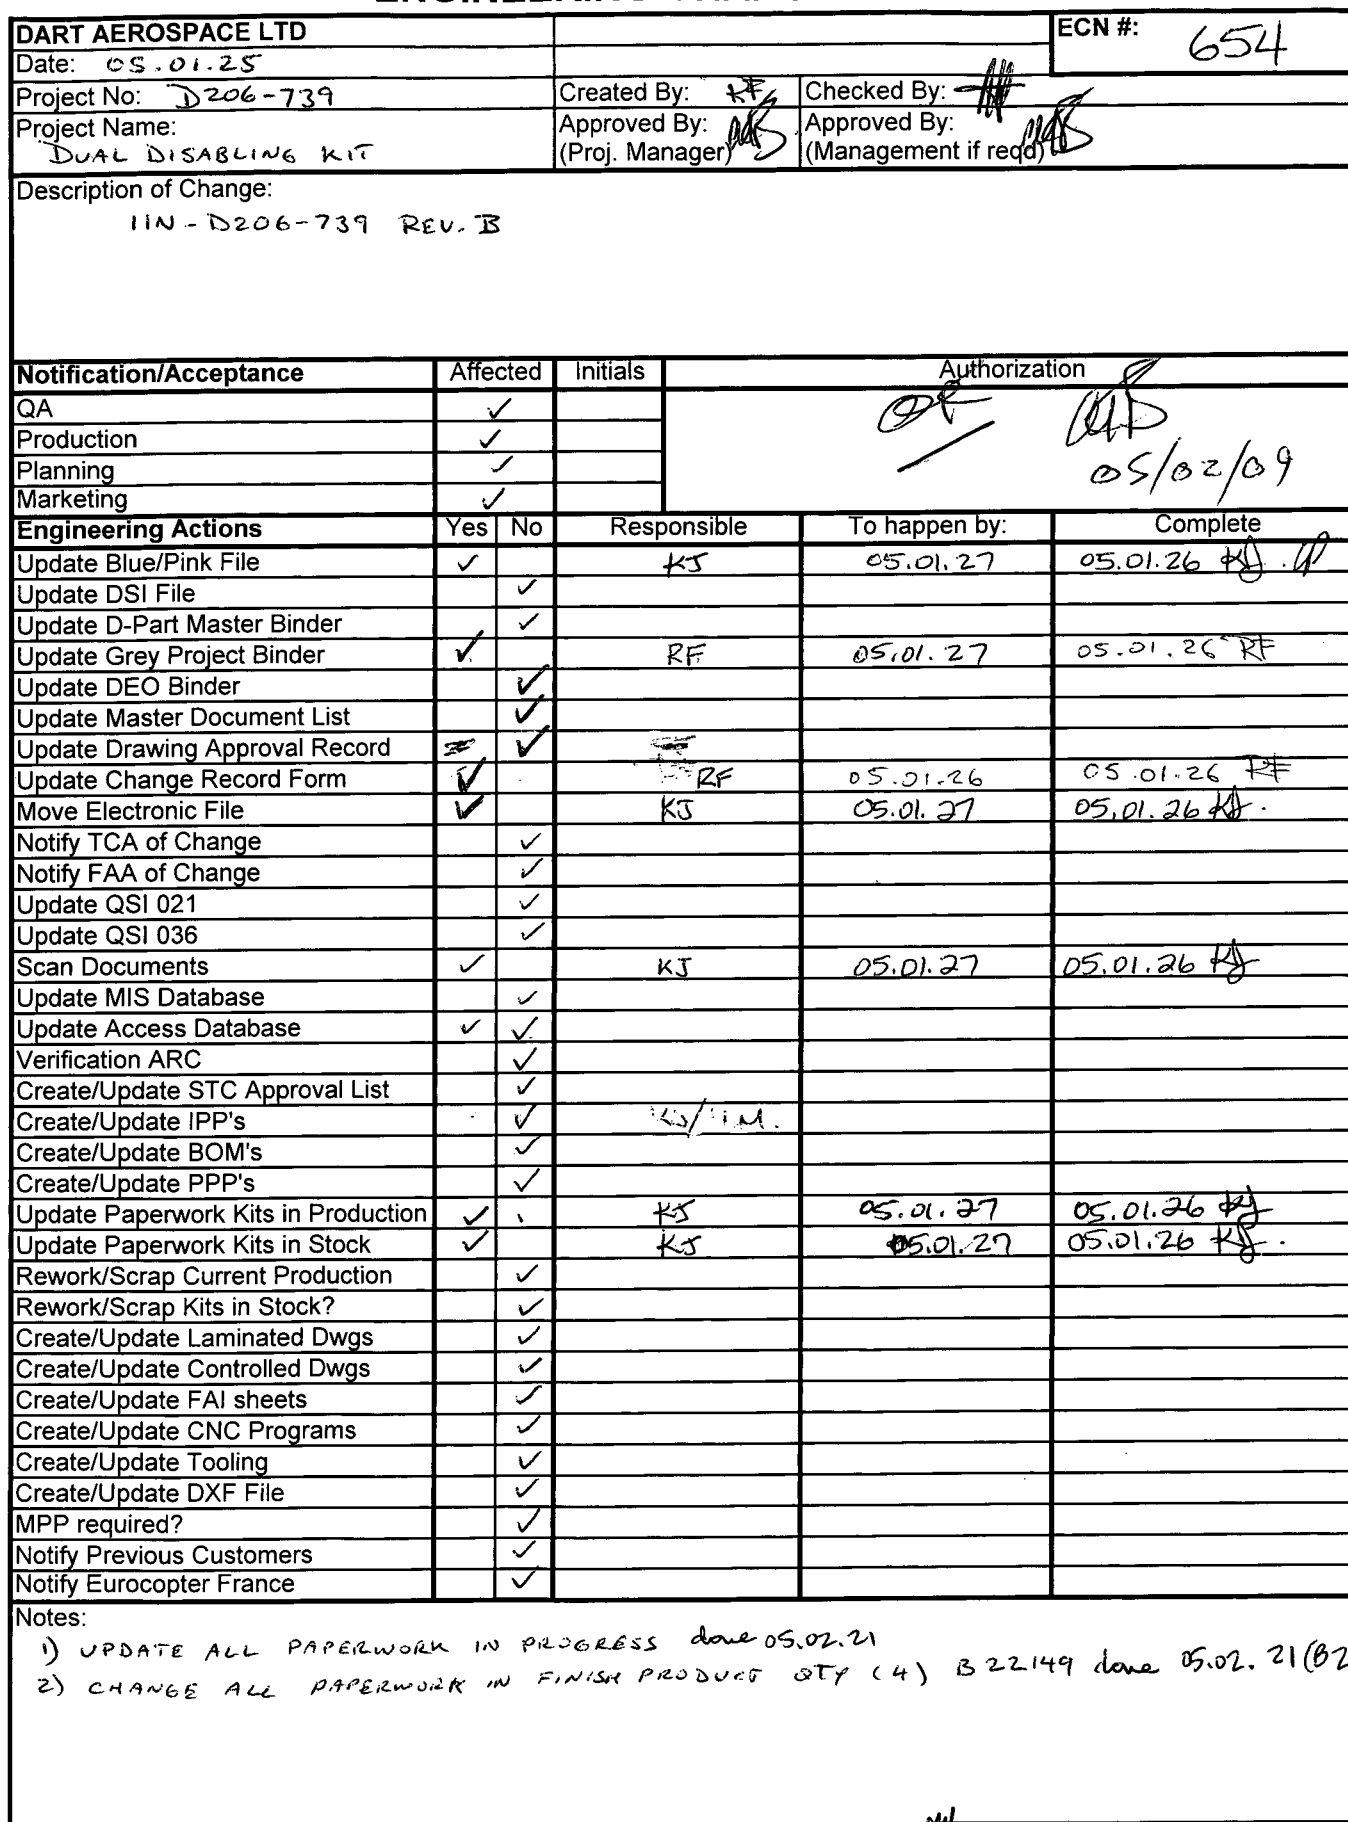 DART AEROSPACE LTD ECN #: 654
Date: 05.01.25
Project No: D206-739 Created By: RF Checked By:
Project Name: Approved By: Approved By:
DUAL DISABLING KIT (Proj. Manager) (Management if reqd)
Description of Change:
IIN-D206-739 REV. B
Notification/Acceptance Affected Initials Authorization
QA ✓
Production ✓
Planning ✓
Marketing ✓
05/02/09
Engineering Actions Yes No Responsible To happen by: Complete
Update Blue/Pink File ✓ KJ 05.01.27 05.01.26 KJ
Update DSI File ✓
Update D-Part Master Binder ✓
Update Grey Project Binder ✓ RF 05.01.27 05.01.26 RF
Update DEO Binder ✓
Update Master Document List ✓
Update Drawing Approval Record ✓
Update Change Record Form ✓ RF 05.01.26 05.01.26 RF
Move Electronic File ✓ KJ 05.01.27 05.01.26 KJ.
Notify TCA of Change ✓
Notify FAA of Change ✓
Update QSI 021 ✓
Update QSI 036 ✓
Scan Documents ✓ KJ 05.01.27 05.01.26 KJ
Update MIS Database ✓
Update Access Database ✓ ✓
Verification ARC ✓
Create/Update STC Approval List ✓
Create/Update IPP's ✓
Create/Update BOM's ✓
Create/Update PPP's ✓
Update Paperwork Kits in Production ✓ KJ 05.01.27 05.01.26 KJ
Update Paperwork Kits in Stock ✓ KJ 05.01.27 05.01.26 KJ.
Rework/Scrap Current Production ✓
Rework/Scrap Kits in Stock? ✓
Create/Update Laminated Dwgs ✓
Create/Update Controlled Dwgs ✓
Create/Update FAI sheets ✓
Create/Update CNC Programs ✓
Create/Update Tooling ✓
Create/Update DXF File ✓
MPP required? ✓
Notify Previous Customers ✓
Notify Eurocopter France ✓
Notes:
1) UPDATE ALL PAPERWORK IN PROGRESS done 05.02.21
2) CHANGE ALL PAPERWORK IN FINISH PRODUCT QTY (4) B22149 done 05.02.21 (B2